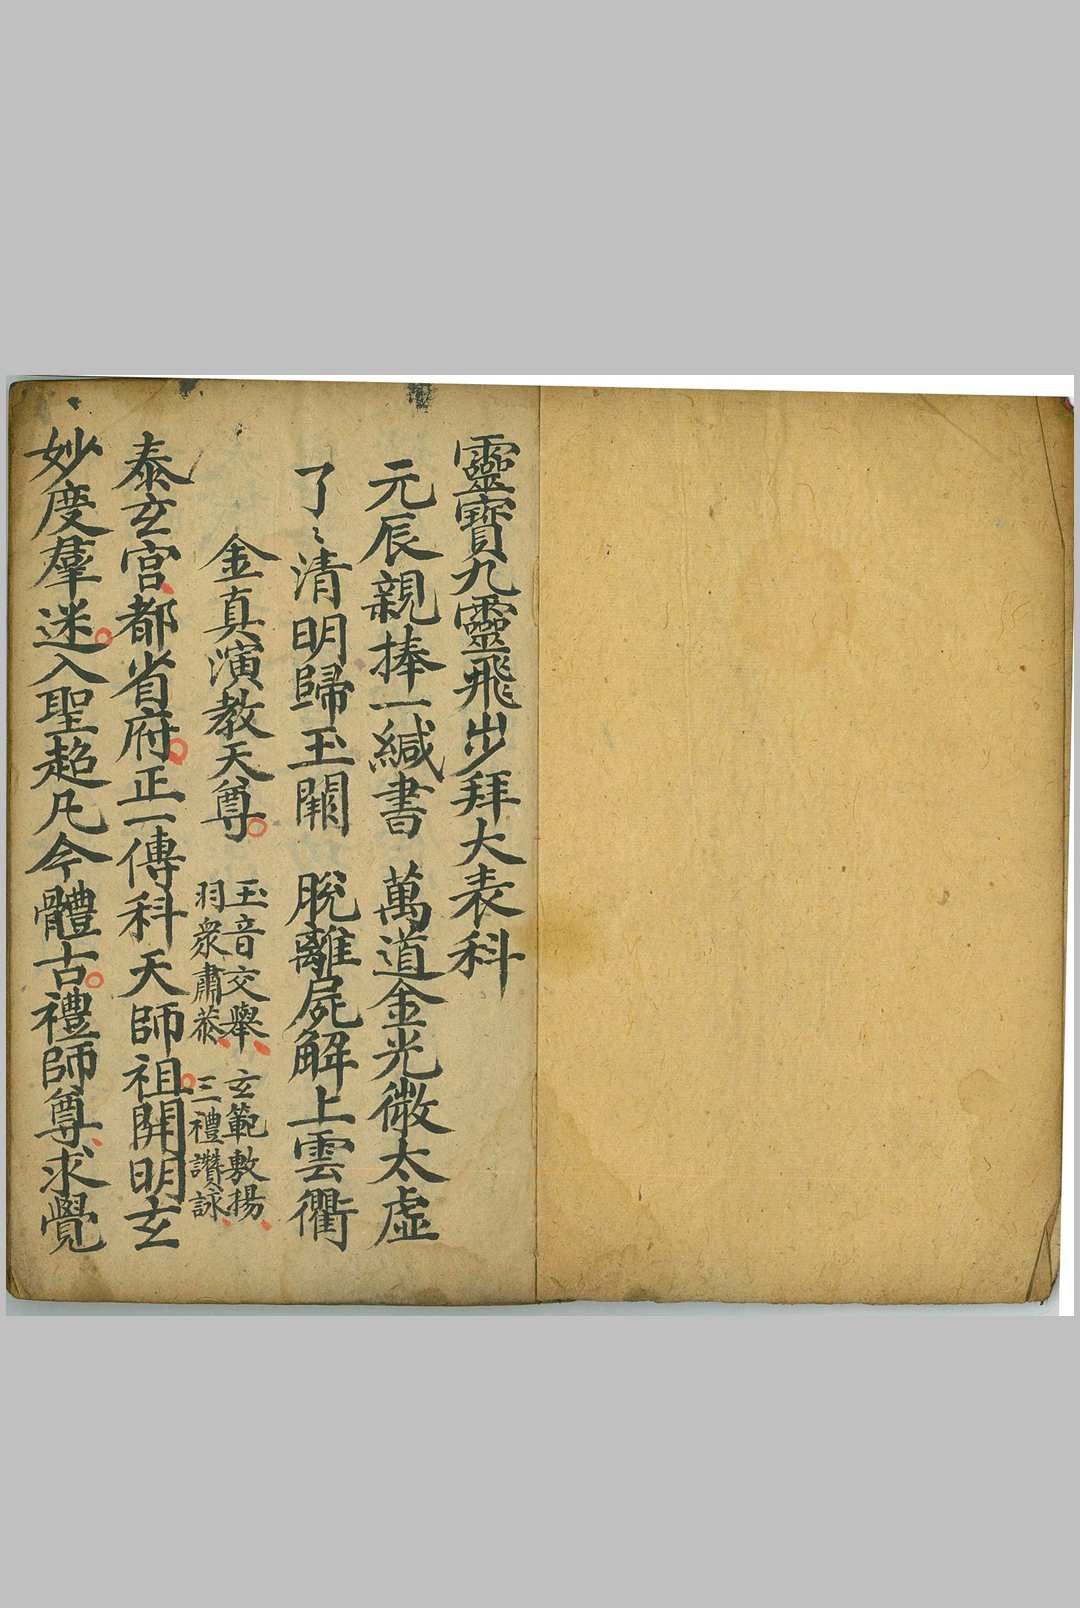 靈寶九靈飛步拜大表科
元辰親捧一緘書 萬道金光微太虛
了〻清明歸玉闕 脫離屍解上雲衢
金真演教天尊 玉音交舉 玄範敷揚
羽衆肅恭 三禮讚詠
泰玄宮都省府正一傳科天師祖開明玄
妙度羣迷入聖超凡今體古禮師尊求覺